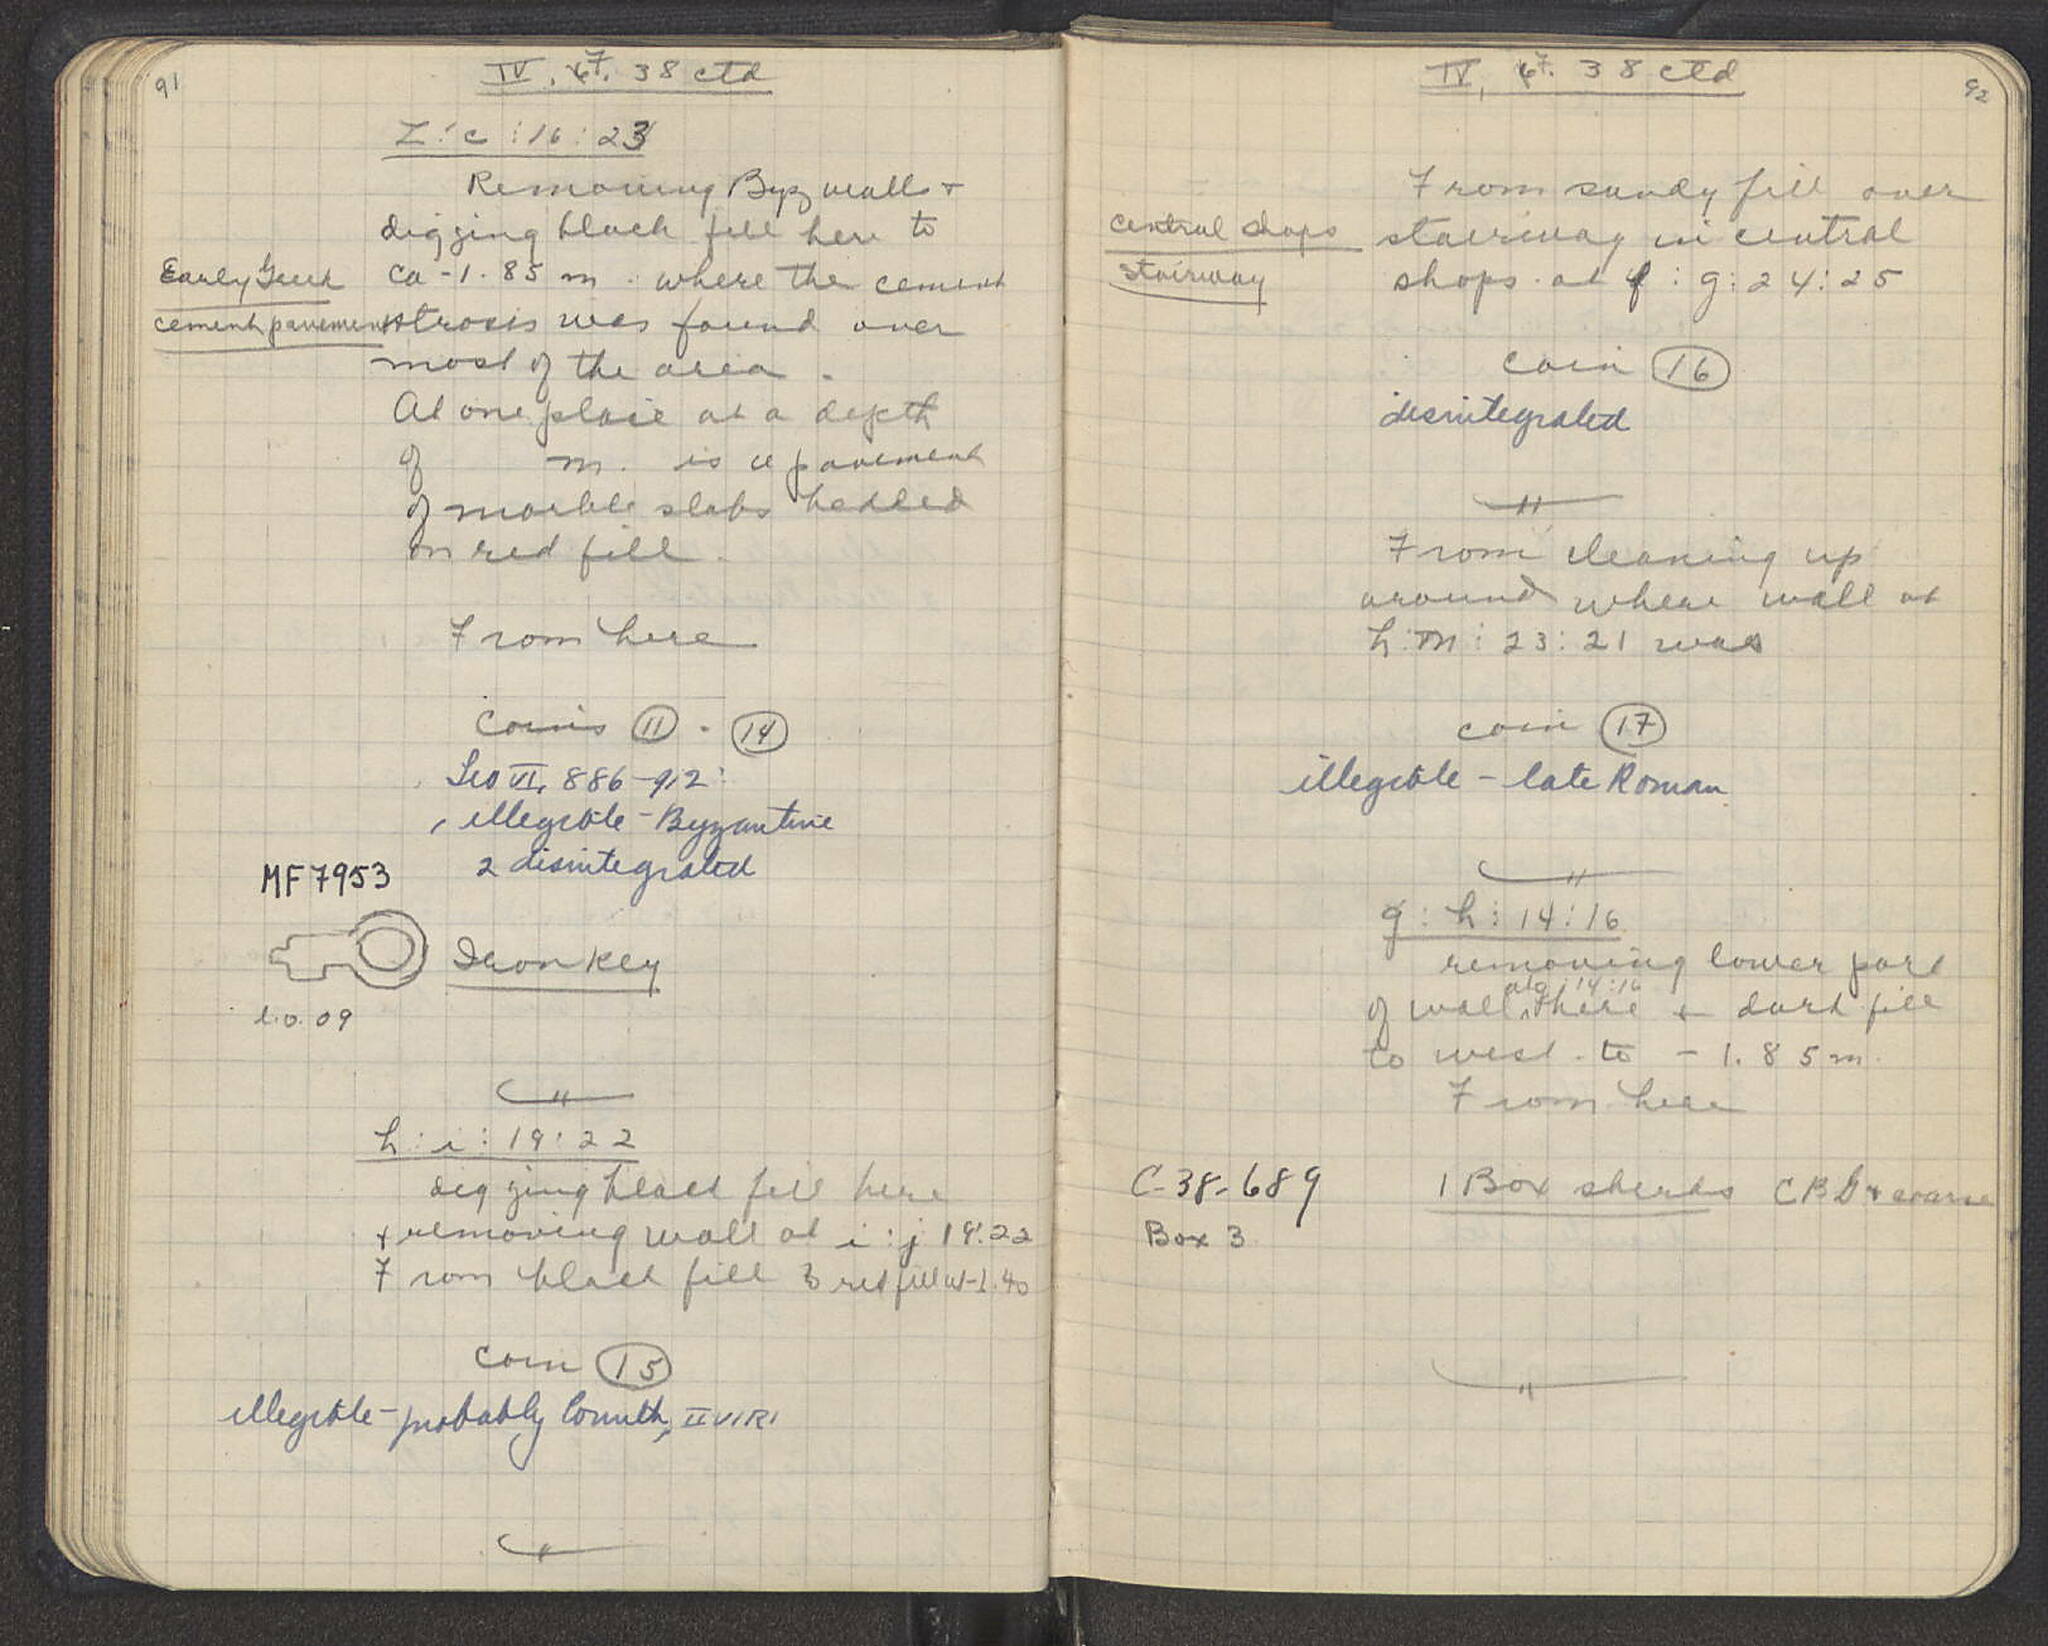 91
IV. 67. 38 ctd
Z:c:16:23
Removing Byz walls +
digging black fill here to
Early Greek
ca -1.85 m. where the cement
cement pavement
strosis was found over
most of the area.
At one place at a depth
of m. is a pavement
of marble slabs bedded
on red fill.
From here
Coins 11 - 14
Leo VI, 886-912:
1 illegible - Byzantine
2 disintegrated
MF 7953
Iron key
l. 0.09
h:i:19:22
digging black fill here
+ removing wall at i:j 19:22
From black fill to red fill at -1.40
coin 15
illegible - probably Corinth, IIVIRI
92
IV, 67. 38 ctd
From sandy fill over
central shops
stairway in central
stairway
shops at f:g:24:25
coin 16
disintegrated
From cleaning up
around where wall at
h:m:23:21 was
coin 17
illegible - late Roman
g:h:14:16
removing lower part
at g:14:16
of wall there + dark fill
to west to -1.85 m.
From here
C-38-689
1 Box sherds CB + coarse
Box 3